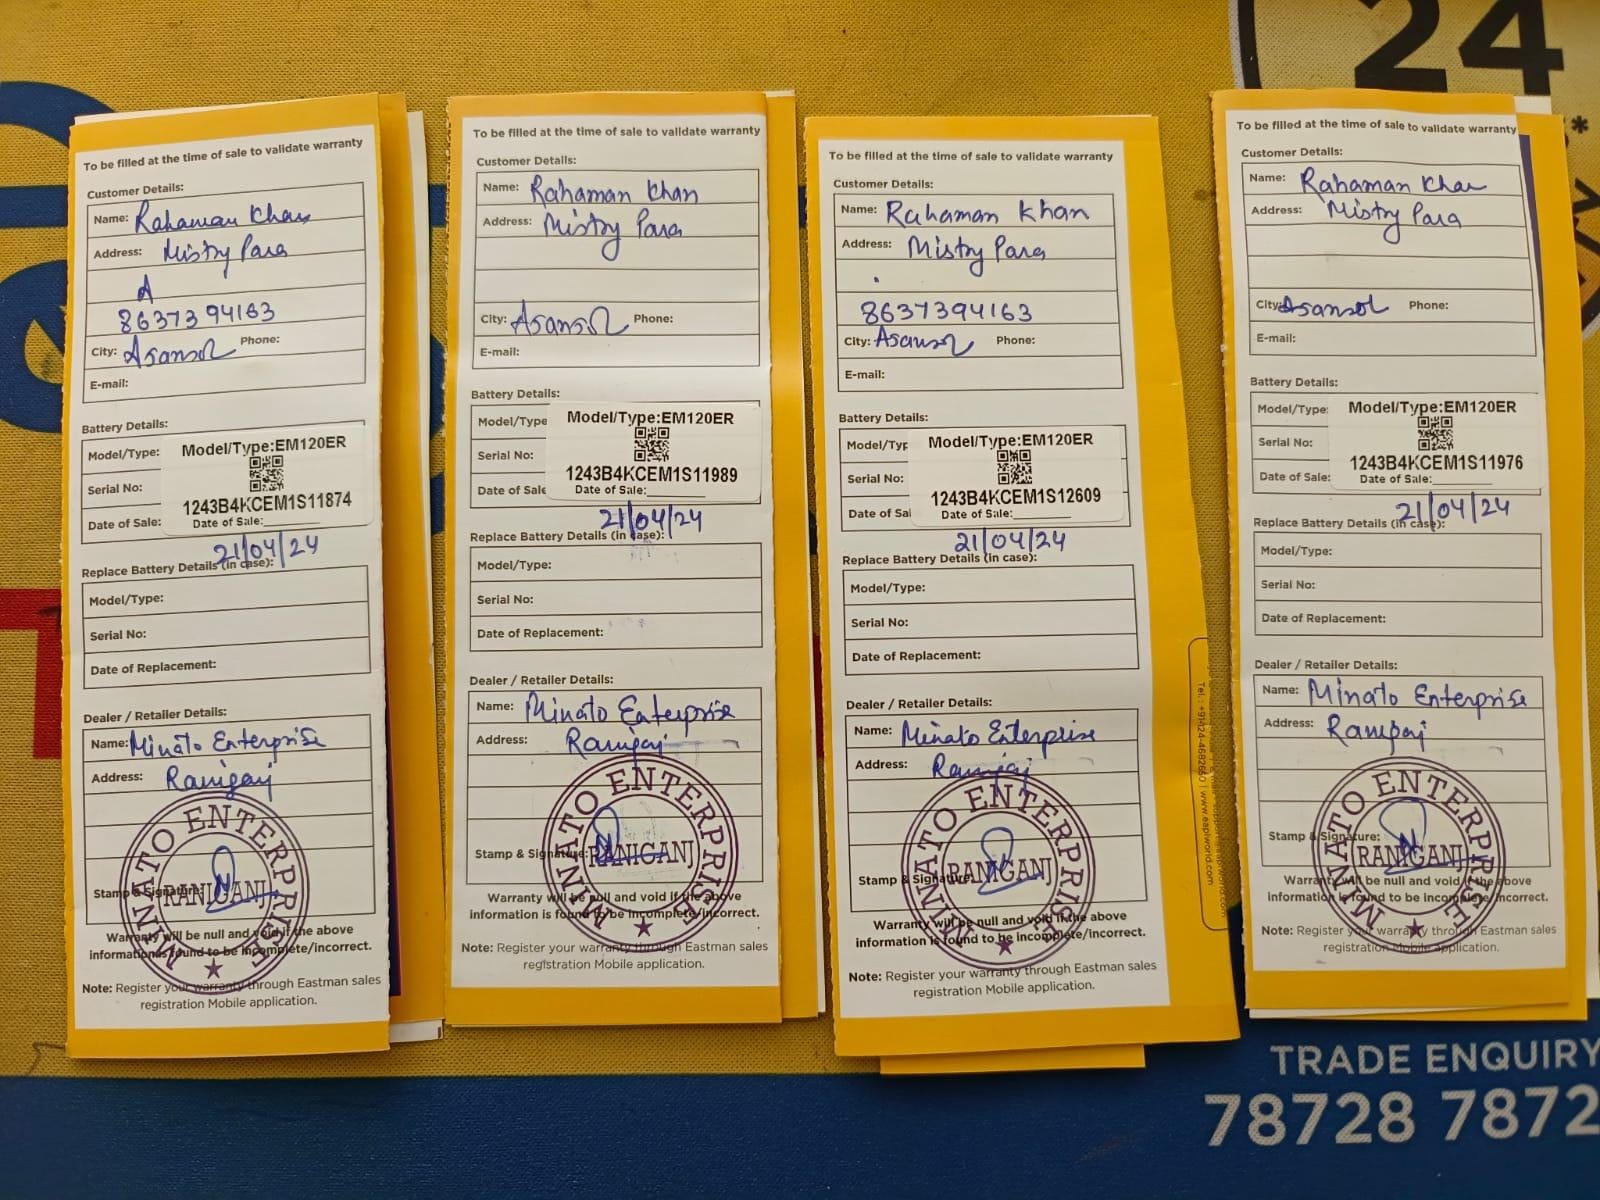 To be filled at the time of sale to validate warranty
Customer Details:
Name: Rahaman Khan
Address: Mistry Para
A
8637394163
City: Asansol Phone:
E-mail:
Battery Details:
Model/Type: Model/Type:EM120ER
Serial No: 1243B4KCEM1S11874
Date of Sale: Date of Sale:
21/04/24
Replace Battery Details (in case):
Model/Type:
Serial No:
Date of Replacement:
Dealer / Retailer Details:
Name: Minato Enterprise
Address: Raniganj
MINATO ENTERPRISE
Stamp & Signature: RANIGANJ
Warranty will be null and void if the above
information is found to be incomplete/incorrect.
Note: Register your warranty through Eastman sales
registration Mobile application.
To be filled at the time of sale to validate warranty
Customer Details:
Name: Rahaman Khan
Address: Mistry Para
City: Asansol Phone:
E-mail:
Battery Details:
Model/Type Model/Type:EM120ER
Serial No: 1243B4KCEM1S11989
Date of Sale Date of Sale:
21/04/24
Replace Battery Details (in case):
Model/Type:
Serial No:
Date of Replacement:
Dealer / Retailer Details:
Name: Minato Enterprise
Address: Raniganj
MINATO ENTERPRISE
Stamp & Signature: RANIGANJ
Warranty will be null and void if the above
information is found to be incomplete/incorrect.
Note: Register your warranty through Eastman sales
registration Mobile application.
To be filled at the time of sale to validate warranty
Customer Details:
Name: Rahaman Khan
Address: Mistry Para
8637394163
City: Asansol Phone:
E-mail:
Battery Details:
Model/Typ Model/Type:EM120ER
Serial No: 1243B4KCEM1S12609
Date of Sal Date of Sale:
21/04/24
Replace Battery Details (in case):
Model/Type:
Serial No:
Date of Replacement:
Dealer / Retailer Details:
Name: Minato Enterprise
Address: Raniganj
MINATO ENTERPRISE
Stamp & Signature: RANIGANJ
Warranty will be null and void if the above
information is found to be incomplete/incorrect.
Note: Register your warranty through Eastman sales
registration Mobile application.
www.eaplworld.com
To be filled at the time of sale to validate warranty
Customer Details:
Name: Rahaman Khan
Address: Mistry Para
City: Asansol Phone:
E-mail:
Battery Details:
Model/Type: Model/Type:EM120ER
Serial No: 1243B4KCEM1S11976
Date of Sale: Date of Sale:
21/04/24
Replace Battery Details (in case):
Model/Type:
Serial No:
Date of Replacement:
Dealer / Retailer Details:
Name: Minato Enterprise
Address: Raniganj
MINATO ENTERPRISE
Stamp & Signature: RANIGANJ
Warranty will be null and void if the above
information is found to be incomplete/incorrect.
Note: Register your warranty through Eastman sales
registration Mobile application.
24
TRADE ENQUIRY
78728 7872